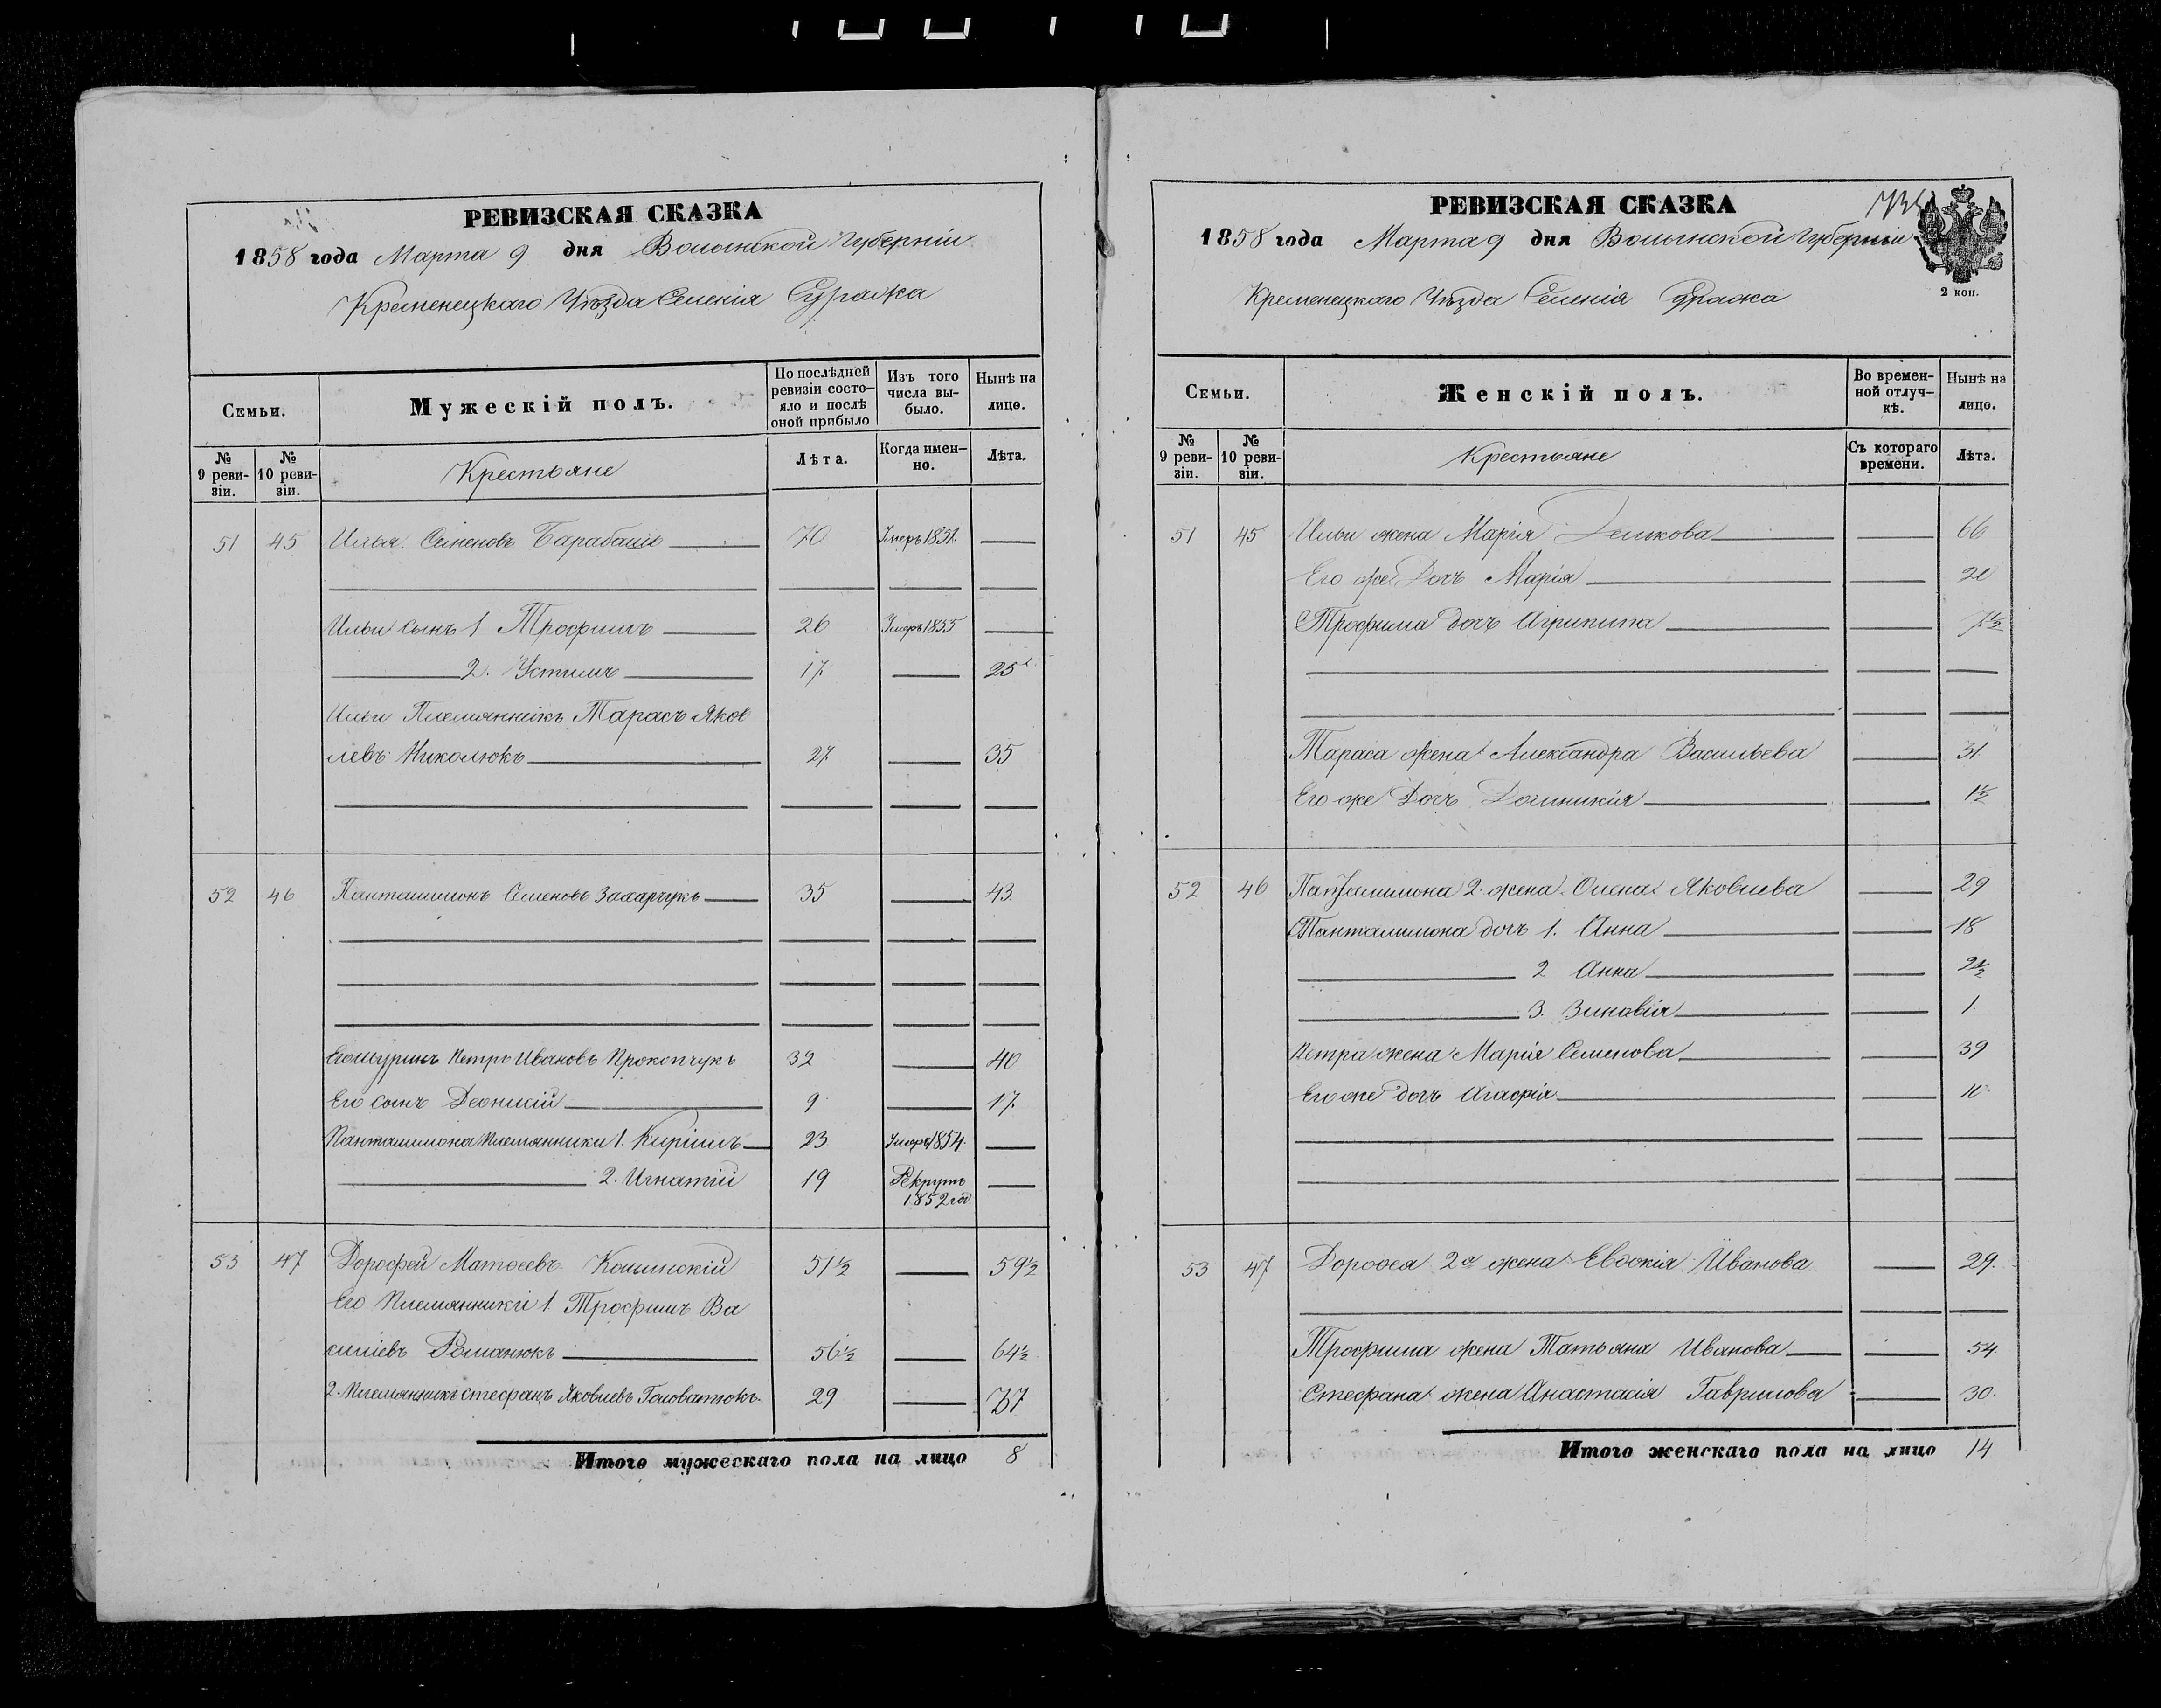 РЕВИЗСКАЯ СКАЗКА
1858 года Марта 9 дня Волынской Губерніи
Кременецкаго Уѣзда Селенія Суража
Семьи.
Мужескій полъ.
По послѣдней ревизіи состо-
яло и послѣ
оной прибыло
Изъ того
числа вы-
было.
Нынѣ на
лицо.
№
9 реви-
зіи.
№
10 реви-
зіи.
Крестьяне
Лѣта.
Когда имен-
но.
Лѣта.
51 45 Илья Семеновъ Барабашъ 70 Умеръ 1851.
Ильи сынъ 1 Трофимъ 26 Умеръ 1855
2. Устимъ 17 25
Ильи Племянникъ Тарасъ Яков
левъ Николюкъ 27 35
52 46 Панталимонъ Семеновъ Захарчукъ 35 43
Его шуринъ Петръ Ивановъ Прокопчукъ 32 40
Его сынъ Леонтій 9 17
Панталимона племянники 1. Кирилъ 23 Умеръ 1854.
2. Игнатій 19 Рекрутъ
1852 го
53 47 Дорофей Матвеевъ 51½ 59½
Его Племянники 1 Трофимъ Ва
силіевъ Романюкъ 56½ 64½
2. Племянникъ Стефанъ Яковлевъ Головатюкъ 29 37
Итого мужескаго пола на лицо 8
РЕВИЗСКАЯ СКАЗКА
1858 года Марта 9 дня Волынской Губерніи
2 коп.
Кременецкаго Уѣзда Селенія Суража
Семьи.
Женскій полъ.
Во времен-
ной отлуч-
кѣ.
Нынѣ на
лицо.
№
9 реви-
зіи.
№
10 реви-
зіи.
Крестьяне
Съ котораго
времени.
Лѣта.
51 45 Ильи жена Марія 66
Его же Дочь Марія
Трофима дочь Агрипина 7½
Тараса жена Александра Васильева 31
Его же Дочь Доминикія 1½
52 46 Панталимона 2. жена Олена Яковлева 29
Панталимона дочь 1. Анна 18
2 Анна 2½
3. Зиновія 1.
Петра жена Марія Семенова 39
Его же дочь Агафія
53 47 Дорофея 2я жена Евдокія Иванова 29.
Трофима жена Татьяна Иванова 54
Стефана жена Анастасія Гаврилова 30.
Итого женскаго пола на лицо 14